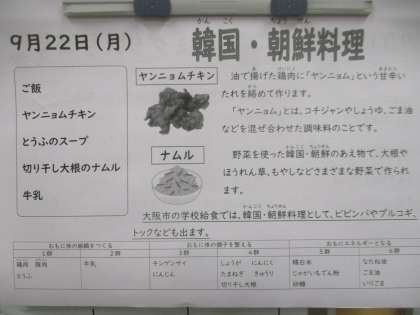 9月22日(月)
かん こく ちょう せん
韓国・朝鮮料理
ご飯
ヤンニョムチキン
とうふのスープ
切り干し大根のナムル
牛乳
ヤンニョムチキン
油で揚げた鶏肉に「ヤンニョム」という甘辛い
たれを絡めて作ります。
「ヤンニョム」とは、コチジャンやしょうゆ、ごま油
などを混ぜ合わせた調味料のことです。
ナムル
野菜を使った韓国・朝鮮のあえ物で、大根や
ほうれん草、もやしなどさまざまな野菜で作られ
ます。
大阪市の学校給食では、韓国・朝鮮料理として、ビビンバやプルコギ、
トックなども出ます。
おもに体の組織をつくる おもに体の調子を整える おもにエネルギーとなる
1群 2群 3群 4群 5群 6群
鶏肉 豚肉 牛乳 チンゲンサイ しょうが にんにく 精白米 なたね油
とうふ にんじん たまねぎ きゅうり じゃがいもでん粉 ごま油
切り干し大根 砂糖 いりごま